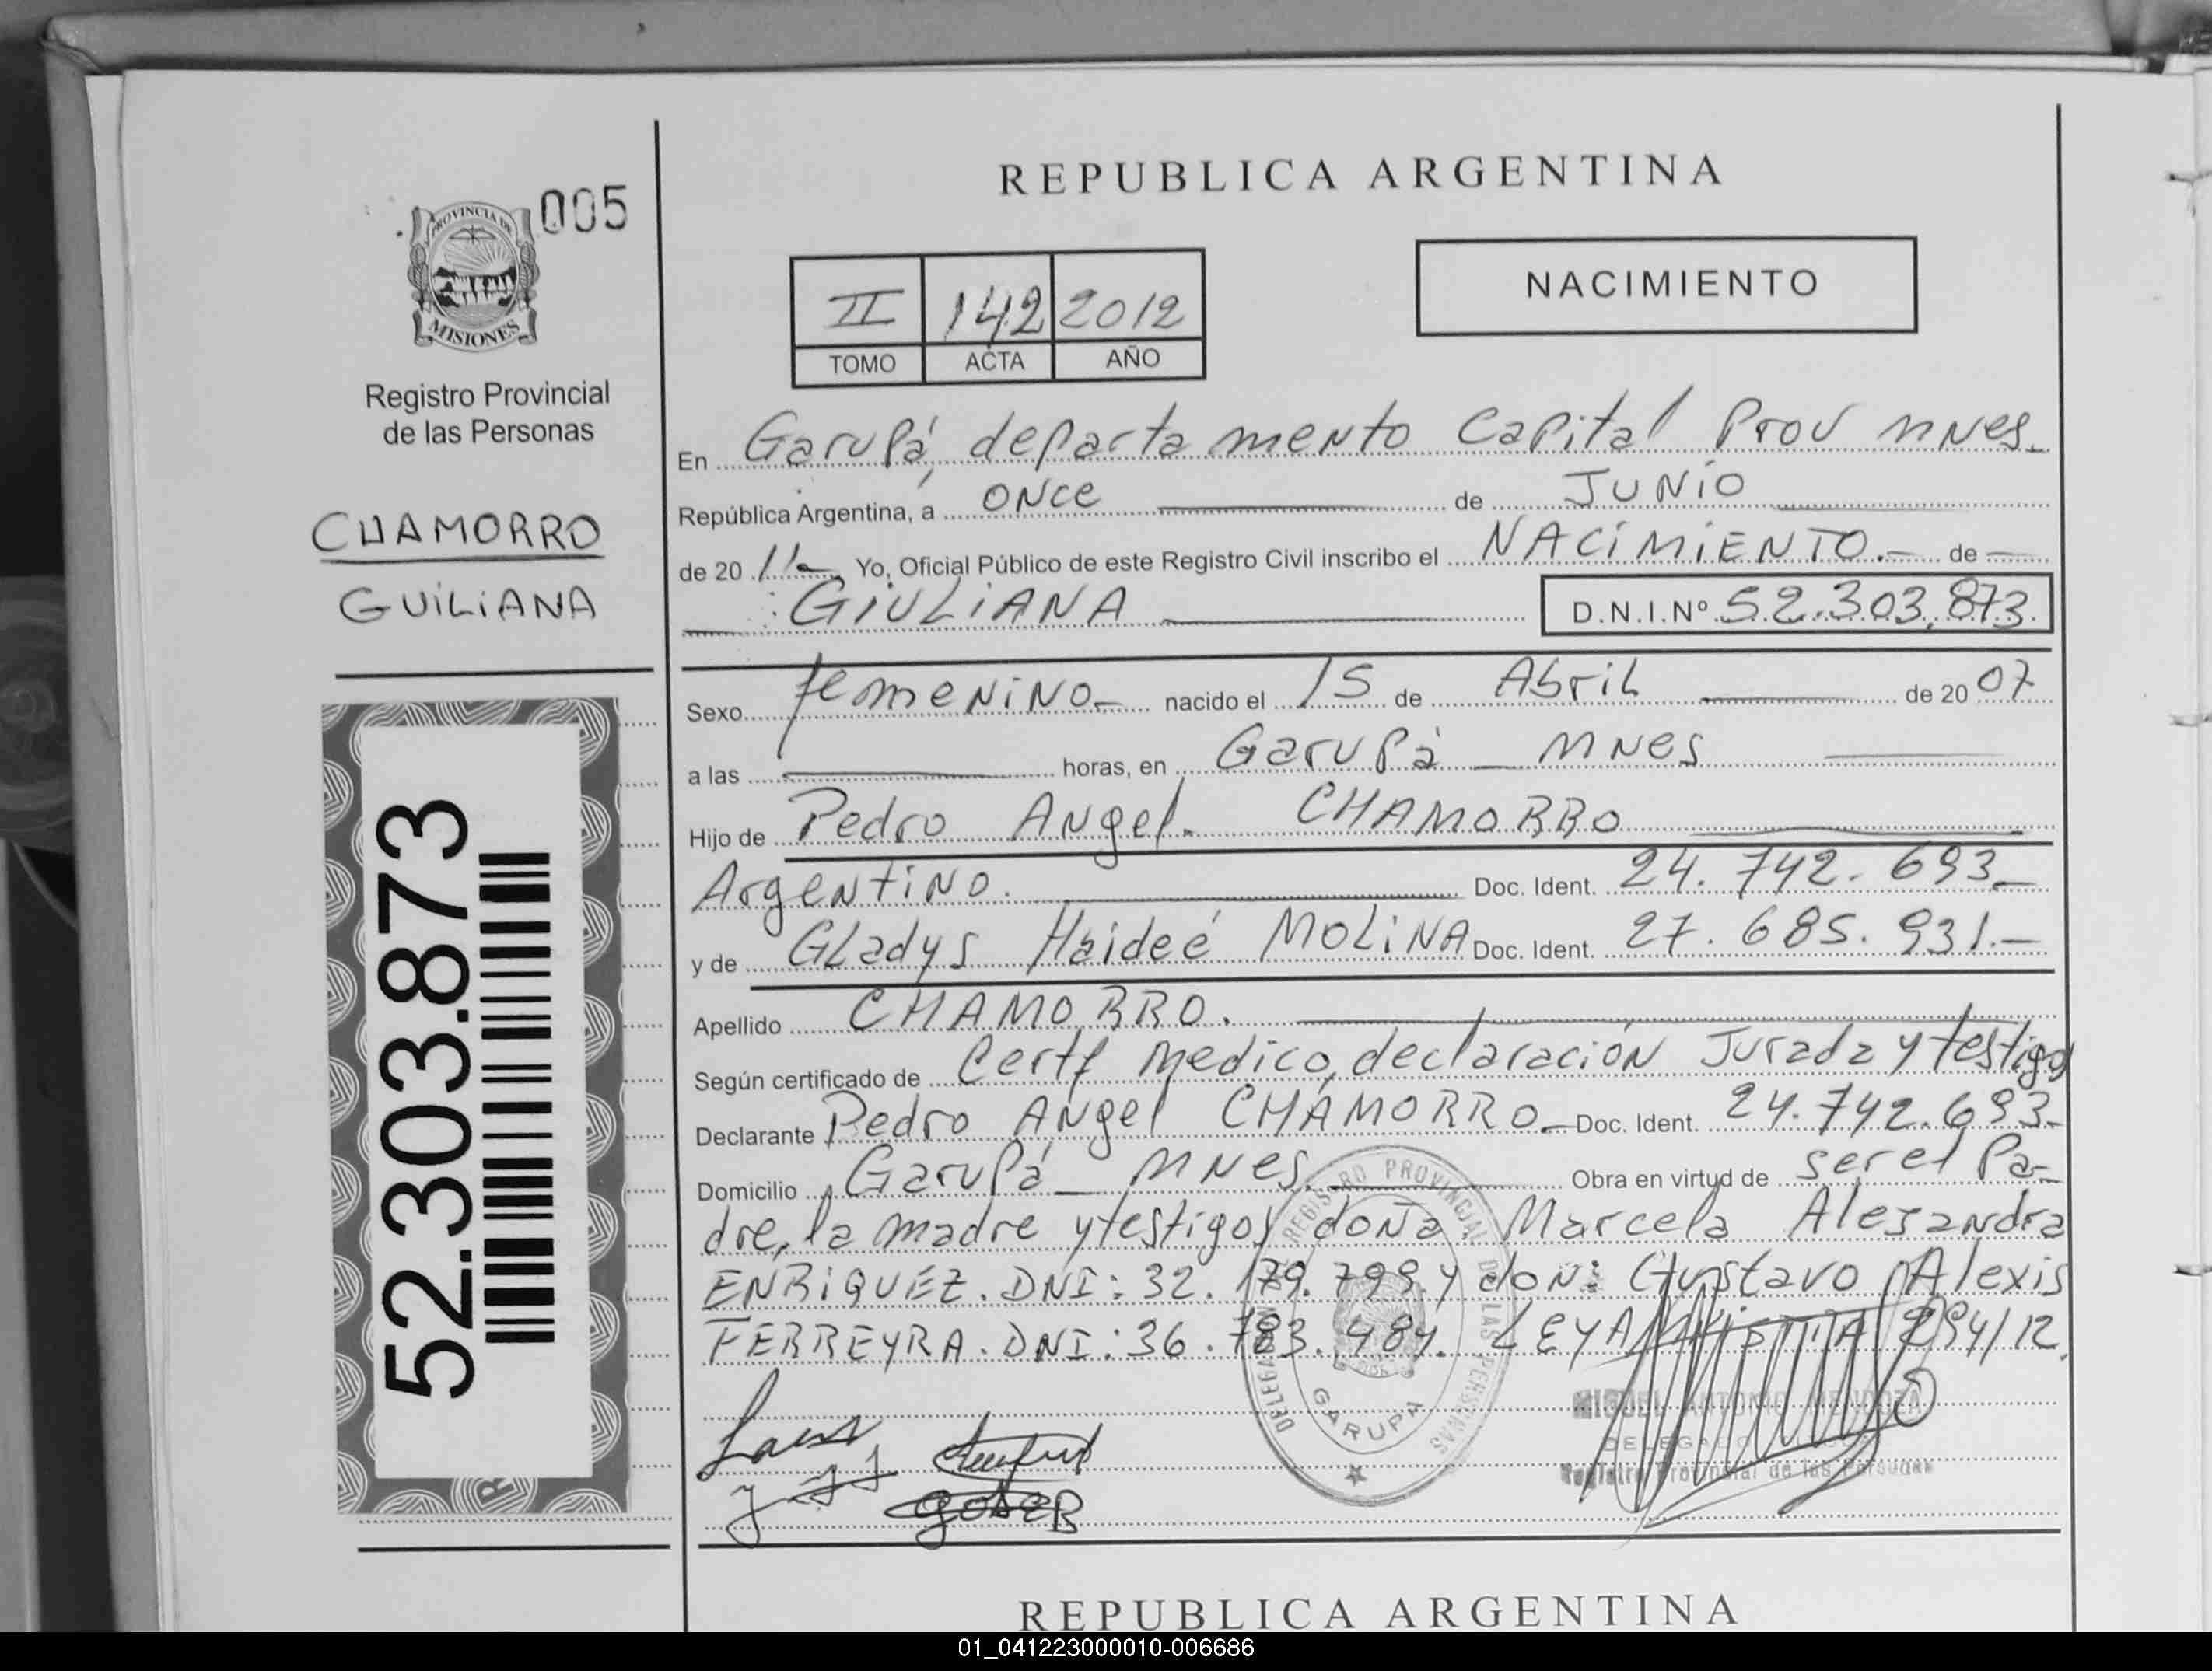 REPUBLICA ARGENTINA
005
PROVINCIA DE
MISIONES
Registro Provincial
de las Personas
CHAMORRO
GUILIANA
52.303.873
II 142 2012
TOMO ACTA AÑO
NACIMIENTO
En Garupá, departamento Capital Prov mnes.
República Argentina, a once de JUNIO
de 20 11 Yo, Oficial Público de este Registro Civil inscribo el NACIMIENTO.- de
: GIULIANA D.N.I.Nº 52.303.873.
Sexo femenino nacido el 15 de Abril de 20 07
a las horas, en Garupá - mnes
Hijo de Pedro Angel. CHAMORRO
Argentino. Doc. Ident. 24.742.693
y de Gladys Haideé MOLINA Doc. Ident. 27.685.931.-
Apellido CHAMORRO.
Según certificado de Certf medico, declaración Jurada y testigos
Declarante Pedro Angel CHAMORRO Doc. Ident. 24.742.693-
Domicilio Garupá - mnes. Obra en virtud de ser el Pa-
dre, la madre y testigos doña Marcela Alejandra
ENRIQUEZ. DNI: 32.179.799 y don: Gustavo Alexis
FERREYRA. DNI: 36.783.484. LEY 294/12.
REGISTRO PROVINCIAL DE LAS PERSONAS
GARUPA
MIGUEL ANTONIO MENDOZA
Registro Provincial de las Personas
REPUBLICA ARGENTINA
01_041223000010-006686